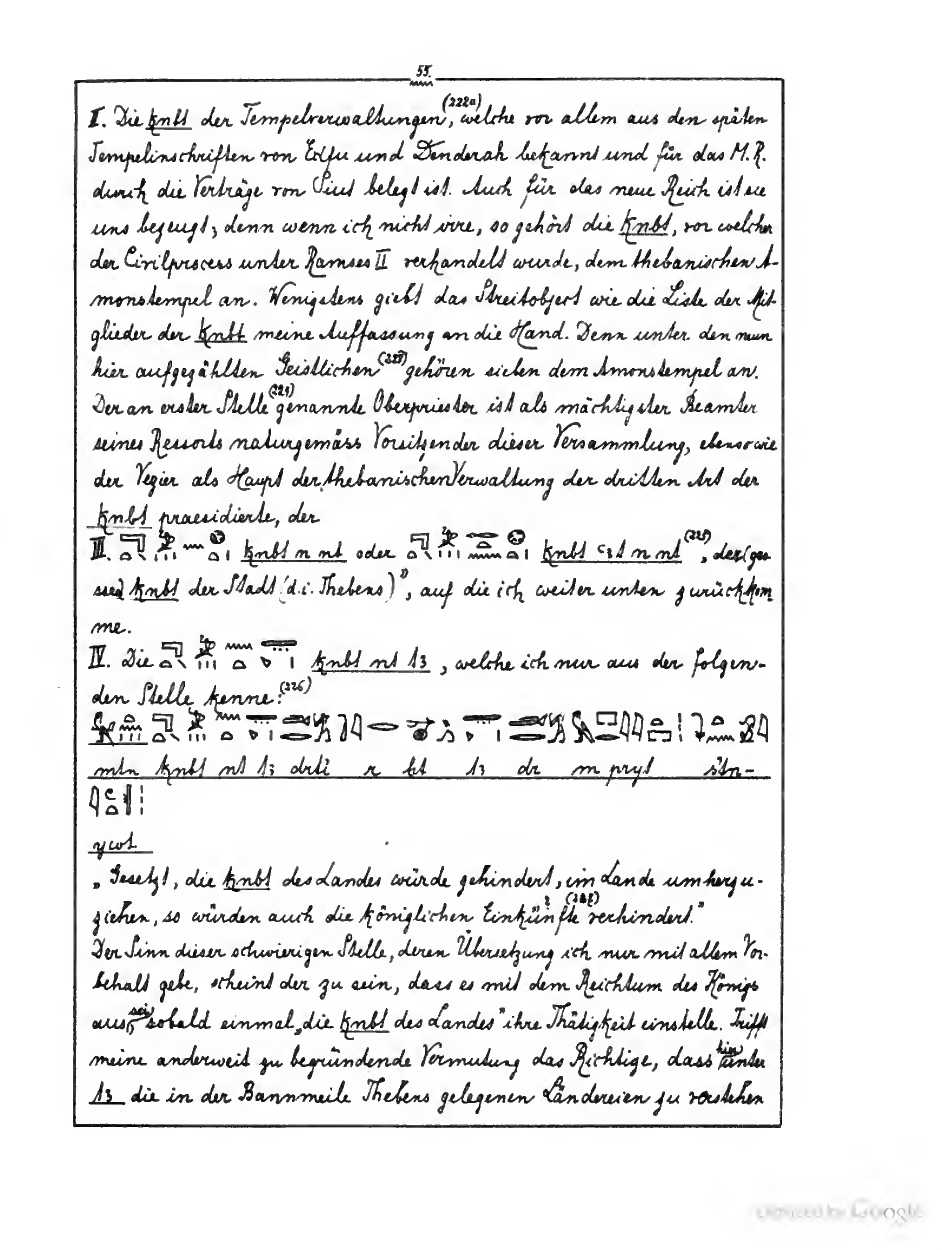 55.
II. Die ḳnbt der Tempelverwaltungen,(222a) welche vor allem aus den späten
Tempelinschriften von Edfu und Denderah bekannt und für das M.R.
durch die Verträge von Siut belegt ist. Auch für das neue Reich ist sie
uns bezeugt; denn wenn ich nicht irre, so gehört die ḳnbt, vor welcher
der Civilprocess unter Ramses II verhandelt wurde, dem thebanischen A-
monstempel an. Wenigstens giebt das Streitobject wie die Liste der Mit-
glieder der ḳnbt meine Auffassung an die Hand. Denn unter den neun
hier aufgezählten Geistlichen gehören sieben dem Amonstempel an.
Der an erster Stelle genannte Oberpriester ist als mächtigster Beamter
seines Ressorts naturgemäss Vorsitzender dieser Versammlung, ebenso wie
der Vezier als Haupt der thebanischen Verwaltung der dritten Art der
ḳnbt praesidierte, der
III. ḳnbt n nt oder ḳnbt ꜥꜣt n nt, der (gro
sse) ḳnbt der Stadt (d.i. Thebens)", auf die ich weiter unten zurückkom
me.
IV. Die ḳnbt nt tꜣ, welche ich nur aus der folgen-
den Stelle kenne:(226)
mtn ḳnbt nt tꜣ drti r ḫt tꜣ dr m pryt stn-
ywt
„Gesetzt, die ḳnbt des Landes würde gehindert, im Lande umherzu-
ziehen, so würden auch die königlichen Einkünfte ? verhindert."
Der Sinn dieser schwierigen Stelle, deren Übersetzung ich nur mit allem Vor-
behalt gebe, scheint der zu sein, dass es mit dem Reichtum des Königs
aus sei, sobald einmal „die ḳnbt des Landes" ihre Thätigkeit einstelle. Trifft
meine anderweit zu begründende Vermutung das Richtige, dass hier unter
tꜣ die in der Bannmeile Thebens gelegenen Ländereien zu verstehen
Digitized by Google